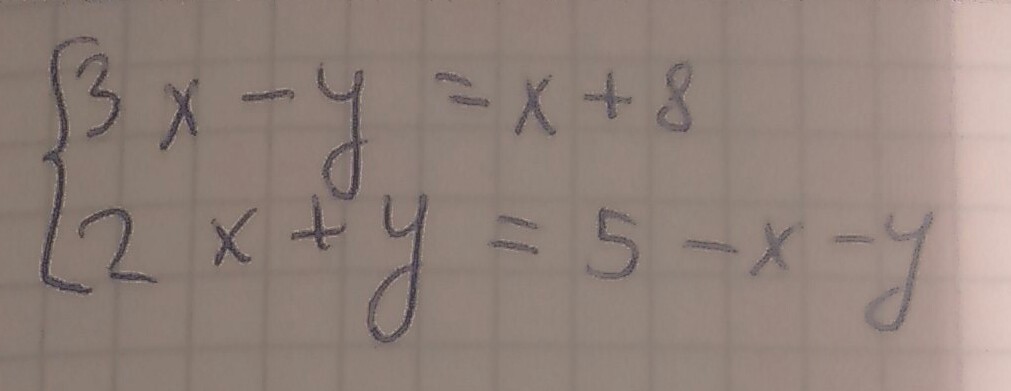 {3x - y = x + 8
2x + y = 5 - x - y